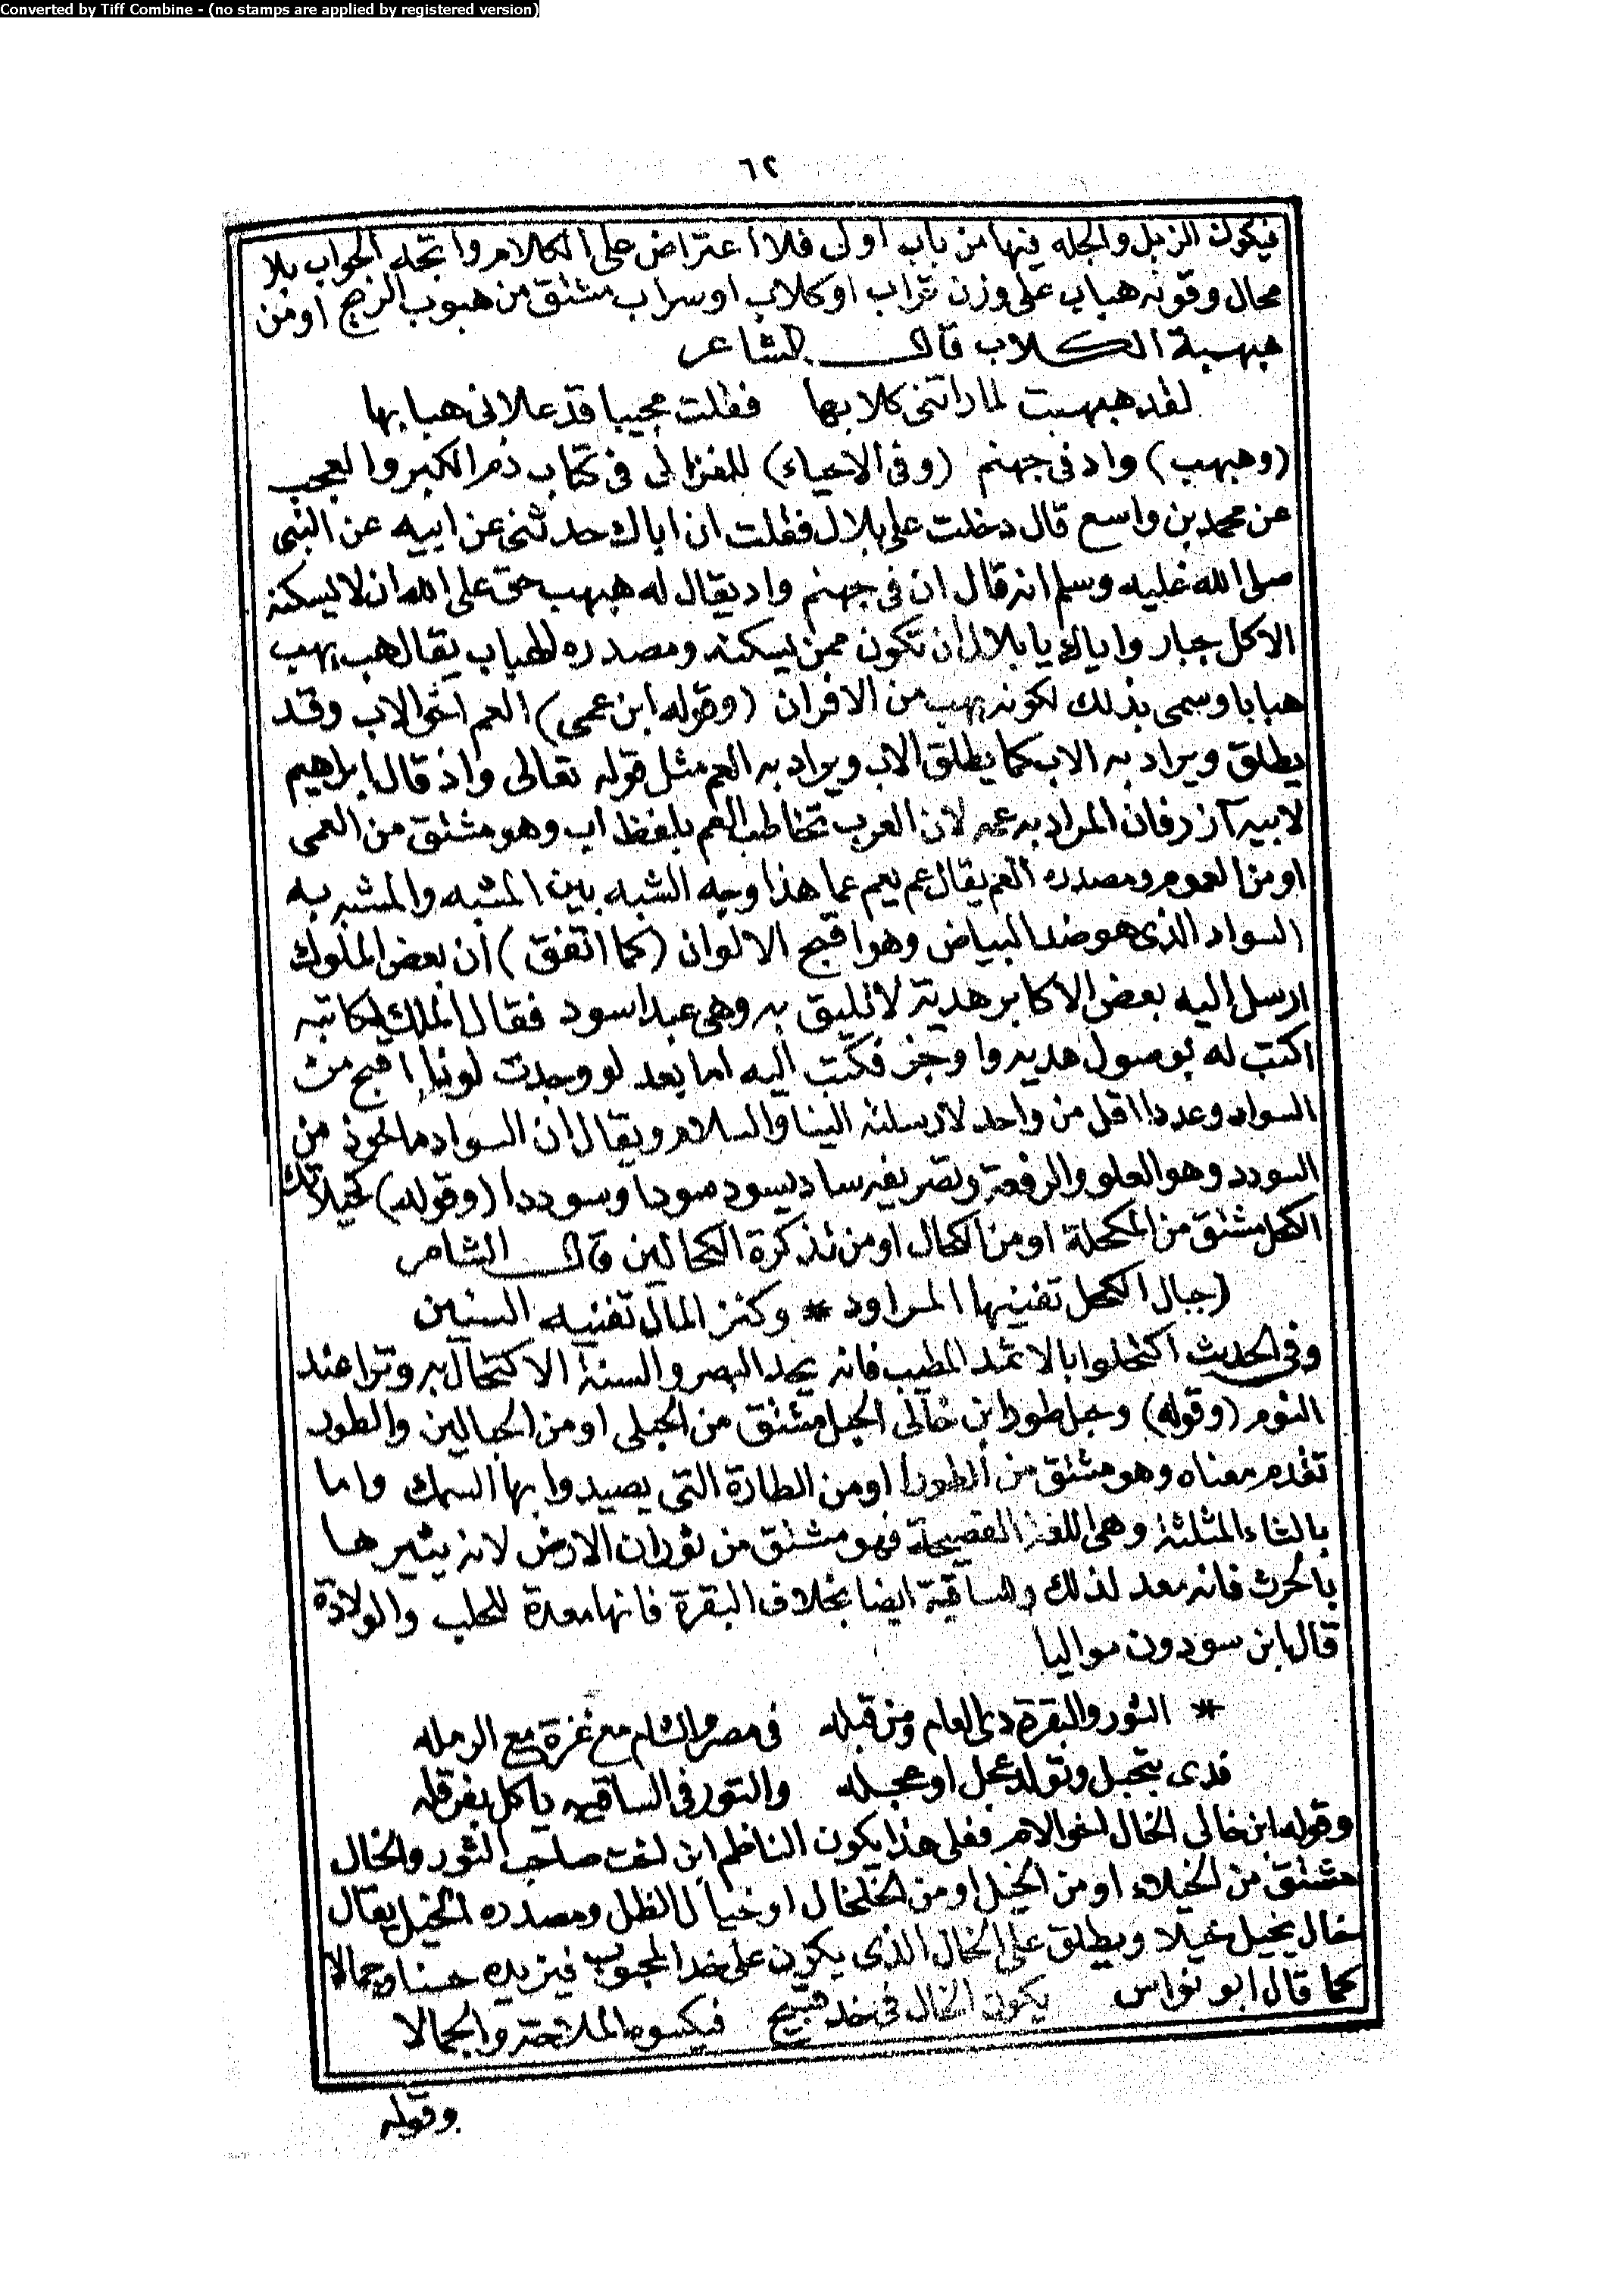 Converted by Tiff Combine - (no stamps are applied by registered version)
٦٢
فيكون الزبل والجله فيها من باب اولى فلا اعتراض على الكلام واتجه الجواب بلا
محال وقوله هباب على وزن تراب او كلاب او سراب مشتق من هبوب الريح او من
هبهبة الكلاب قال الشاعر
لقد هبهبت لما راتنى كلابها فقلت مجيبا قد علانى هبابها
(وهبهب) واد فى جهنم (وفى الاحياء) للغزالى فى كتاب ذم الكبر والعجب
عن محمد بن واسع قال دخلت على بلال فقلت ان اباك حدثنى عن ابيه عن النبى
صلى الله عليه وسلم انه قال ان فى جهنم واد يقال له هبهب حق على الله ان لا يسكنه
الا كل جبار واياك يا بلال ان تكون ممن يسكنه ومصدره الهباب يقال هب يهب
هبابا وسمى بذلك لكونه يهب من الافران (وقوله ابن عمى) العم اخو الاب وقد
يطلق ويراد به الاب كما يطلق الاب ويراد به العم مثل قوله تعالى واذ قال ابراهيم
لابيه آزر فان المراد به عمه لان العرب تخاطب العم بلفظ اب وهو مشتق من العمى
او من العموم ومصدره العم يقال عم يعم عما هذا وجه الشبه بين المشبه والمشبه به
السواد الذى هو ضد البياض وهو اقبح الالوان (كما اتفق) ان بعض الملوك
ارسل اليه بعض الاكابر هدية لا تليق به وهى عبد اسود فقال الملك لكاتبه
اكتب له بوصول هديه واوجز فكتب اليه اما بعد لو وجدت لونا اقبح من
السواد وعددا اقل من واحد لارسلته الينا والسلام ويقال ان السواد ماخوذ من
السودد وهو العلو والرفعة وتصريفه ساد يسود سودا وسوددا (وقوله) كحيلاتك
الكحل مشتق من المكحلة او من الكحال او من تذكرة الكحالين قال الشاعر
جبال الكحل تفنيها المراود * وكنز المال تفنيه السنين
وفى الحديث اكتحلوا بالاثمد المطيب فانه يحد البصر والسنة الاكتحال به وترا عند
النوم (وقوله) وجبل طور ابن خالى الجبل مشتق من الجبلى او من الجبالين والطور
تقدم معناه وهو مشتق من الطورا او من الطارة التى يصيدوا بها السمك واما
بالثاء المثلثة وهى اللغة الفصيحة فهو مشتق من ثوران الارض لانه يثيرها
بالحرث فانه معد لذلك والساقية ايضا بخلاف البقرة فانها معدة للحلب والولادة
قال ابن سودون مواليا
* الثور والبقرة دى العام ومن قبله فى مصر والشام مع غزة مع الرمله
فدى بتحبل وتولد عجل او عجله والثور فى الساقيه ياكل بفرقله
وقوله ابن خالى الخال اخو الام فعلى هذا يكون الناظم ابن اخت صاحب الثور والخال
مشتق من الخيلاء او من الخيل او من الخلخال او خيال الظل ومصدره الخيل يقال
خال يخيل خيلا ويطلق على الخال الذى يكون على خد المحبوب فيزيده حسنا وجمالا
كما قال ابو نواس يكون الخال فى خد قبيح فيكسوه الملاحة والجمالا
وقوله